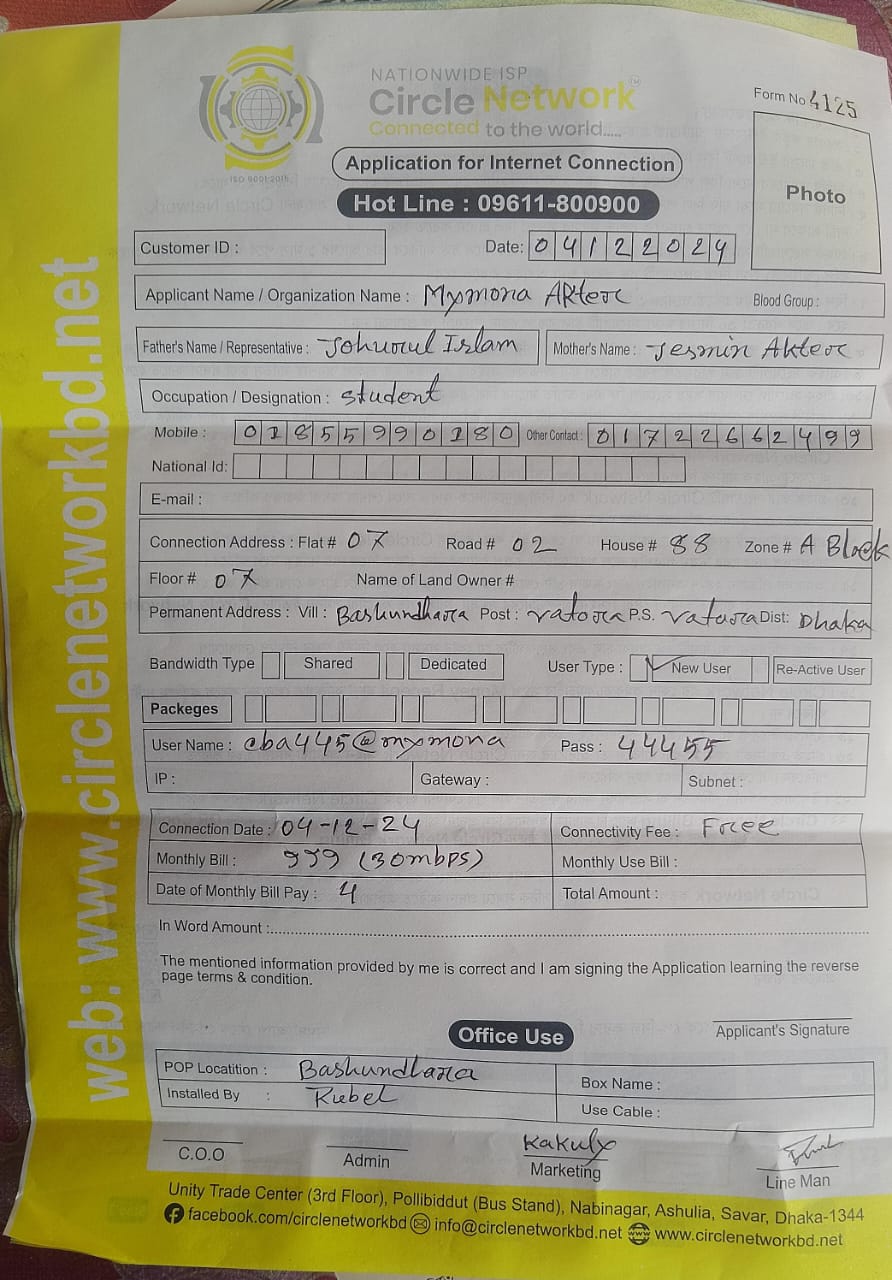 NATIONWIDE ISP
Circle Network TM
Connected to the world.....
ISO 9001:2015
Form No 4125
Application for Internet Connection
Photo
Hot Line : 09611-800900
Customer ID : Date: 04122024
Applicant Name / Organization Name : Mymona Akter Blood Group :
Father's Name / Representative : Johurul Islam Mother's Name : Jesmin Akter
Occupation / Designation : Student
Mobile : 01855990180 Other Contact : 01722662499
National Id:
E-mail :
Connection Address : Flat # 07 Road # 02 House # 88 Zone # A Block
Floor # 07 Name of Land Owner #
Permanent Address : Vill : Bashundhara Post : vatora P.S. vatara Dist: Dhaka
Bandwidth Type Shared Dedicated User Type : New User Re-Active User
Packeges
User Name : cba445@mymona Pass : 44455
IP : Gateway : Subnet :
Connection Date : 04-12-24 Connectivity Fee : Free
Monthly Bill : 999 (30mbps) Monthly Use Bill :
Date of Monthly Bill Pay : 4 Total Amount :
In Word Amount :
The mentioned information provided by me is correct and I am signing the Application learning the reverse
page terms & condition.
Applicant's Signature
Office Use
POP Locatition : Bashundhara Box Name :
Installed By : Rubel Use Cable :
Kakuly
C.O.O Admin Marketing Line Man
Unity Trade Center (3rd Floor), Pollibiddut (Bus Stand), Nabinagar, Ashulia, Savar, Dhaka-1344
facebook.com/circlenetworkbd info@circlenetworkbd.net www.circlenetworkbd.net
web: www.circlenetworkbd.net